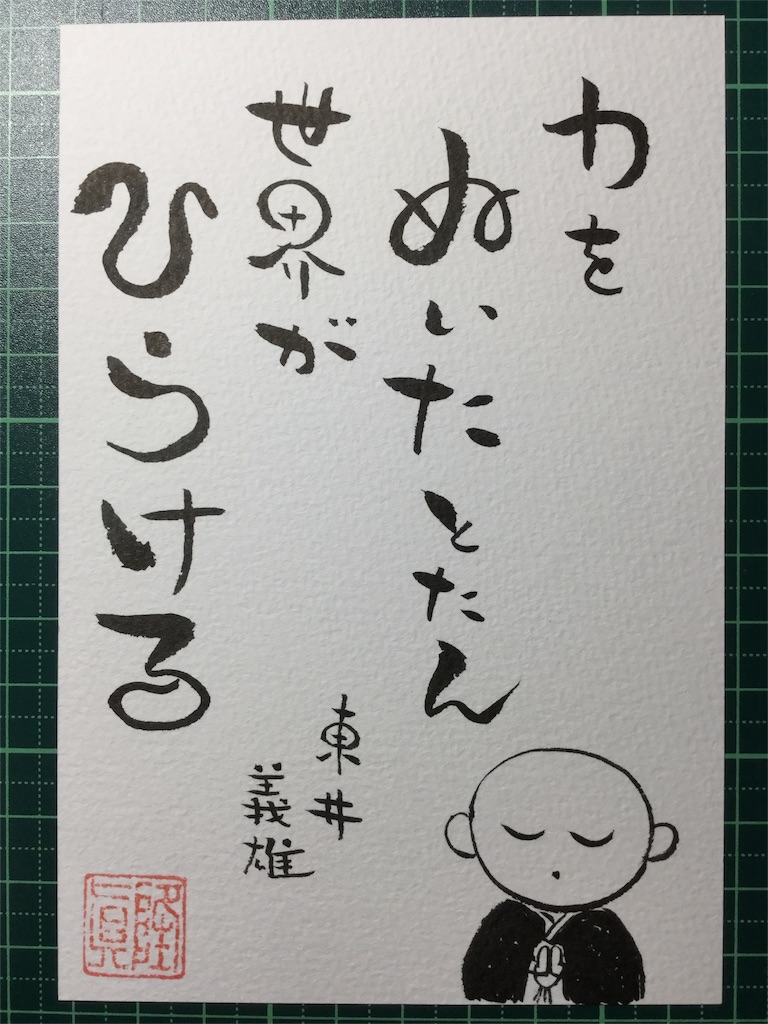 力を
ぬいたとたん
世界が
ひらける
東井
義雄